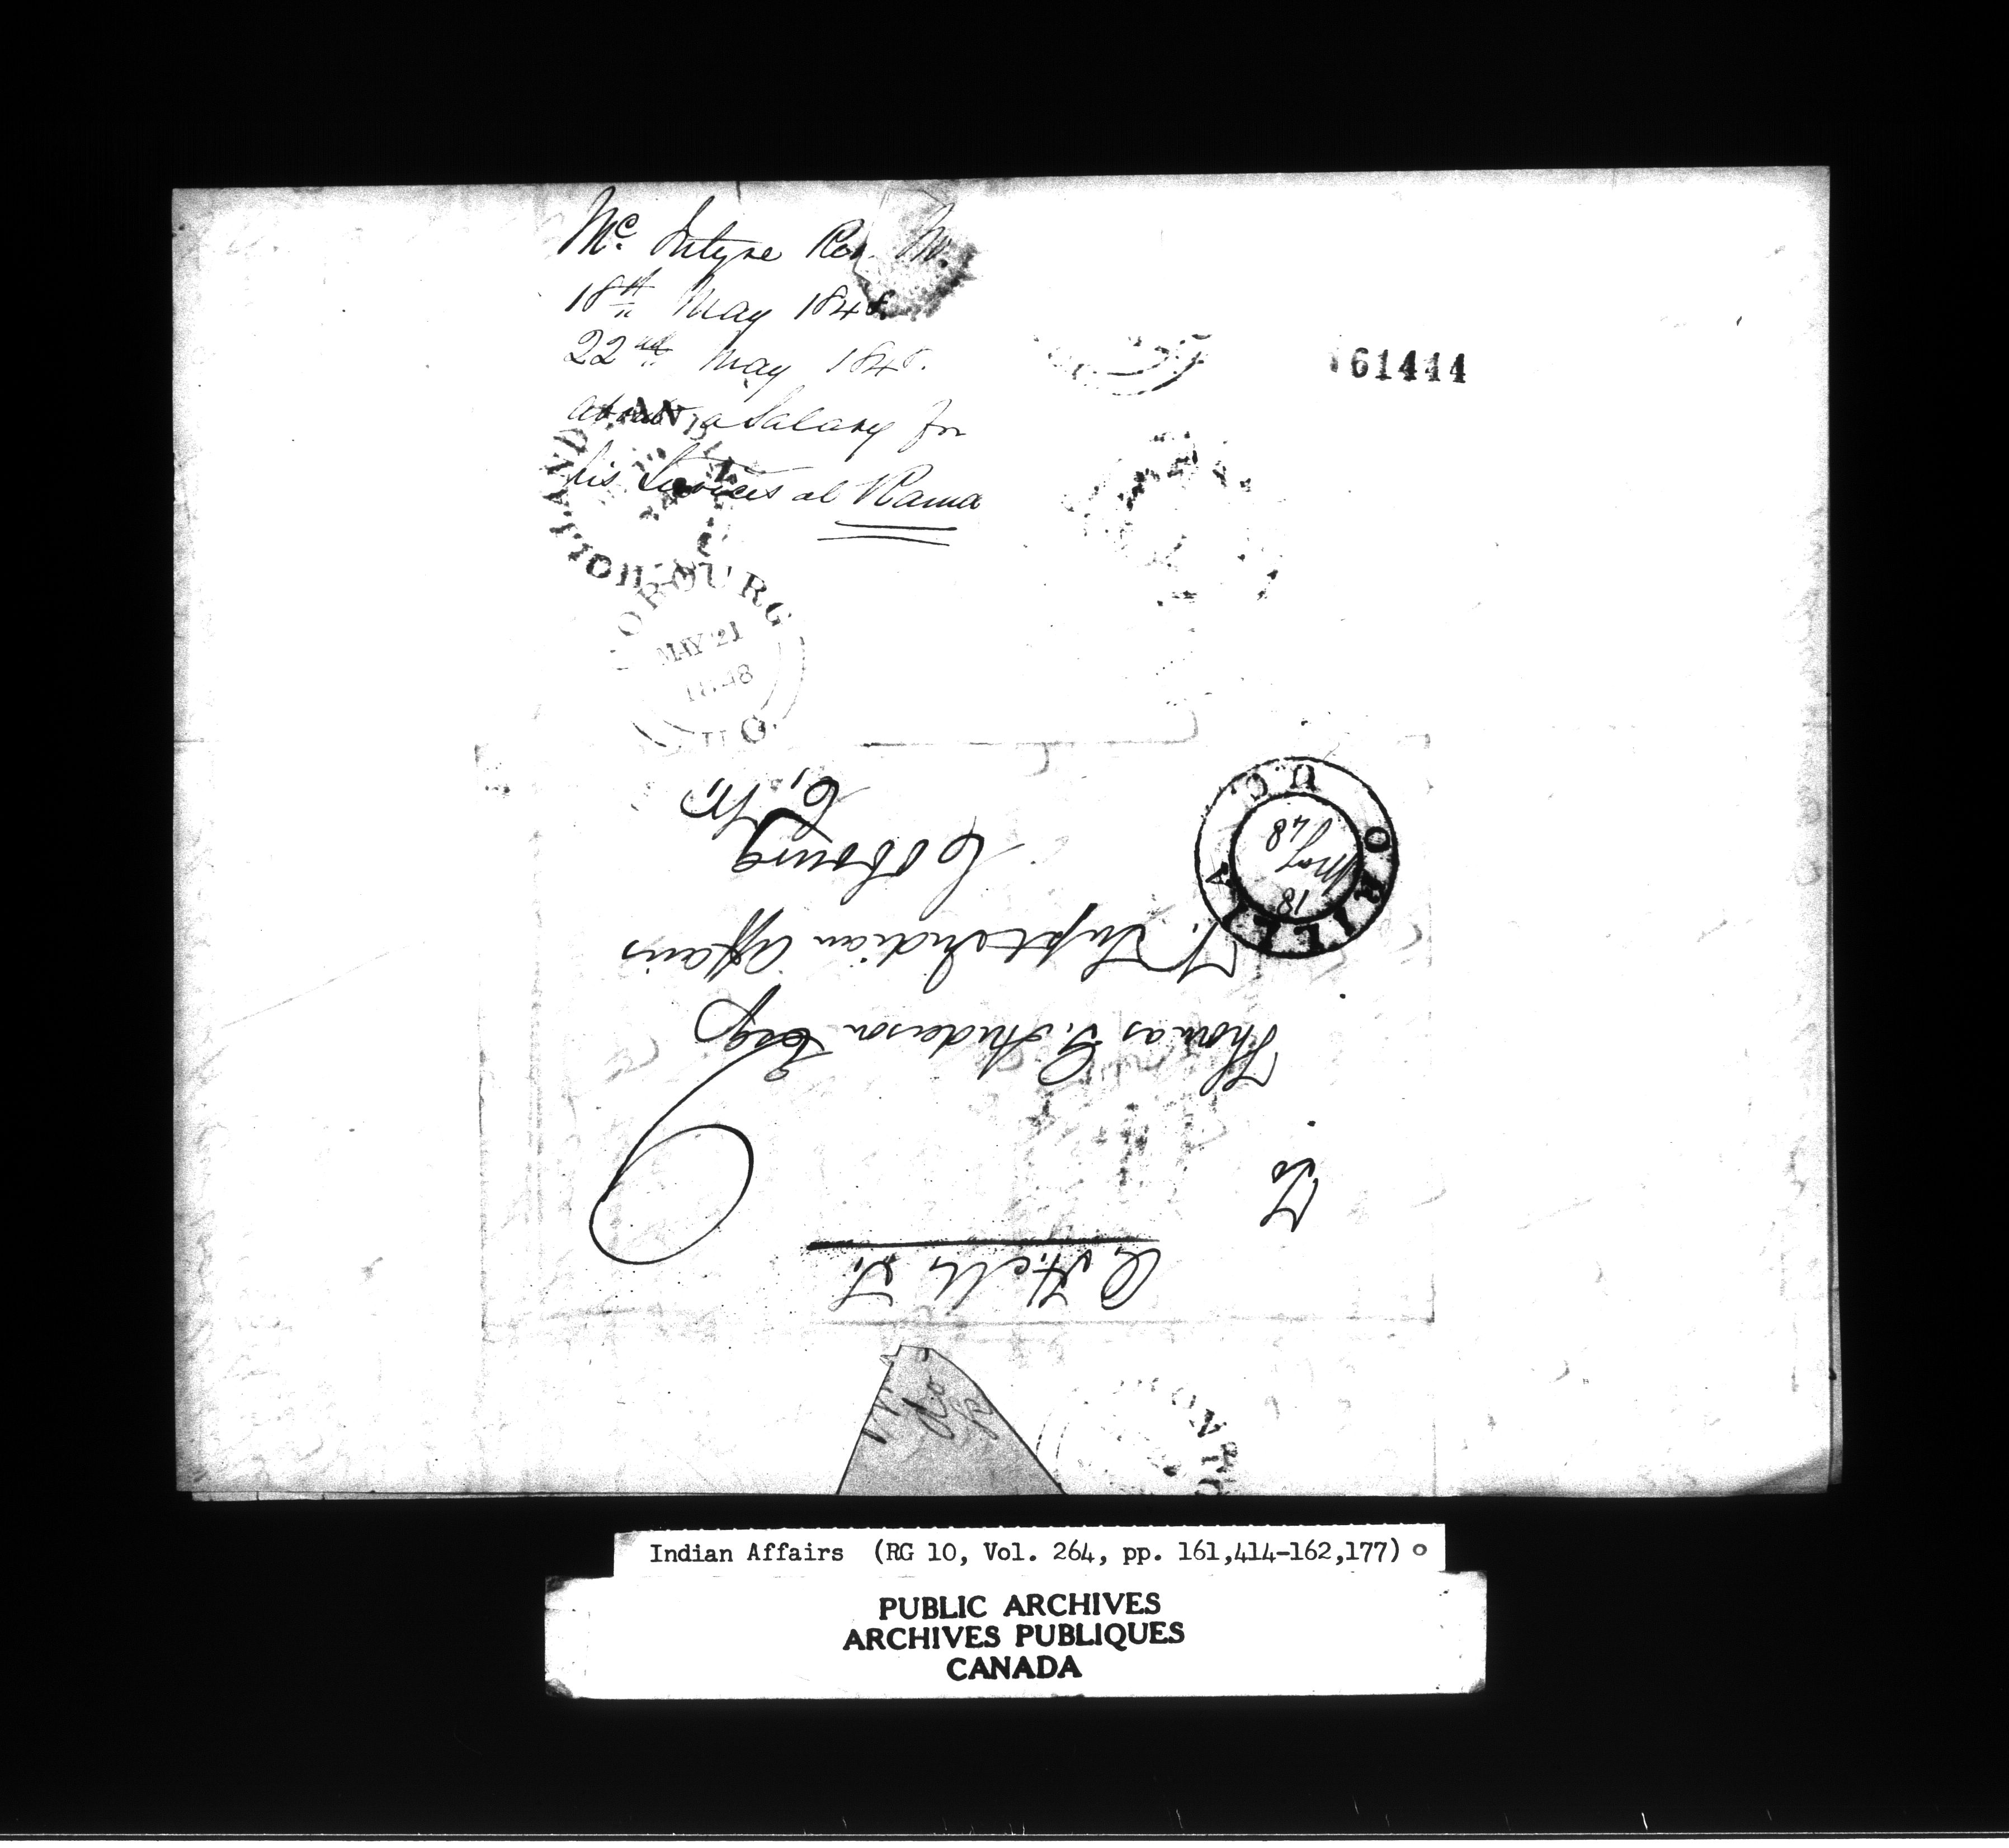 Mc. Intyre Rev. W.
18th May 1848
22nd May 1848.
about a Salary for
his Services at Rama
161444
HOLLAND LAN
COBOURG
MAY 21
1848
U C
ORILLIA
U C
18
May
/48
To
Thomas G. Anderson Esq
V. Supt Indian Affairs
Cobourg
C, W,
Indian Affairs (RG 10, Vol. 264, pp. 161,414-162,177)
PUBLIC ARCHIVES
ARCHIVES PUBLIQUES
CANADA